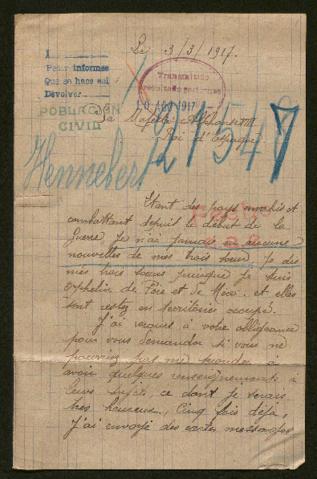 Le 3/3/1917.
1
Para informes
Que se hace así
Devolver
POBLACIÓN
CIVIL
Transmitido
10 AGO 1917
Sa Majesté Alphonse XIII
Roi d'Espagne
Hennebert
21548
Etant des pays envahis et
combattant depuis le début de la
Guerre. Je n'ai jamais eu aucune
nouvelles de mes trois sœurs, je dis
mes trois sœurs puisque je suis
orphelin de Père et de Mère. et elles
sont restées en territoire occupé.
J'ai recours à votre obligeance
pour vous demander si vous ne
pourriez pas me
avoir quelques renseignements à
leurs sujets, ce dont je serais
très heureux, Cinq fois déjà,
J'ai envoyé des cartes messages